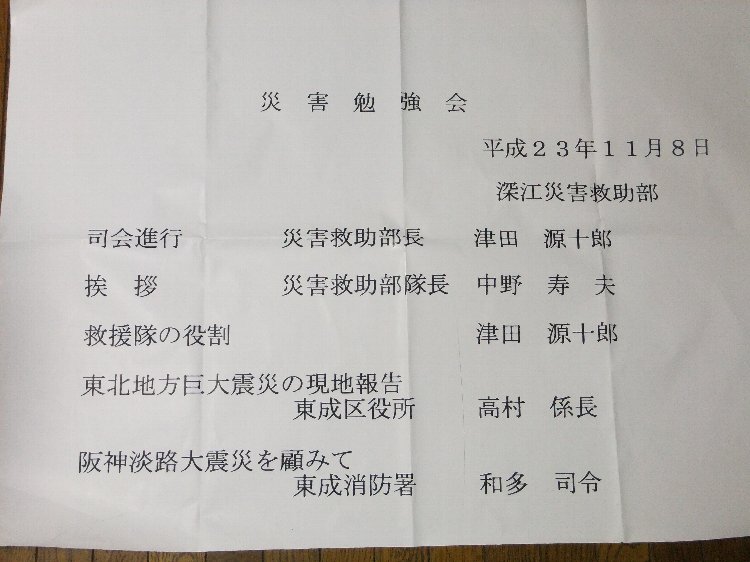 災害勉強会
平成２３年１１月８日
深江災害救助部
司会進行　災害救助部長　津田　源十郎
挨　拶　災害救助部隊長　中野　寿　夫
救援隊の役割　津田　源十郎
東北地方巨大震災の現地報告
東成区役所　高村　係長
阪神淡路大震災を顧みて
東成消防署　和多　司令